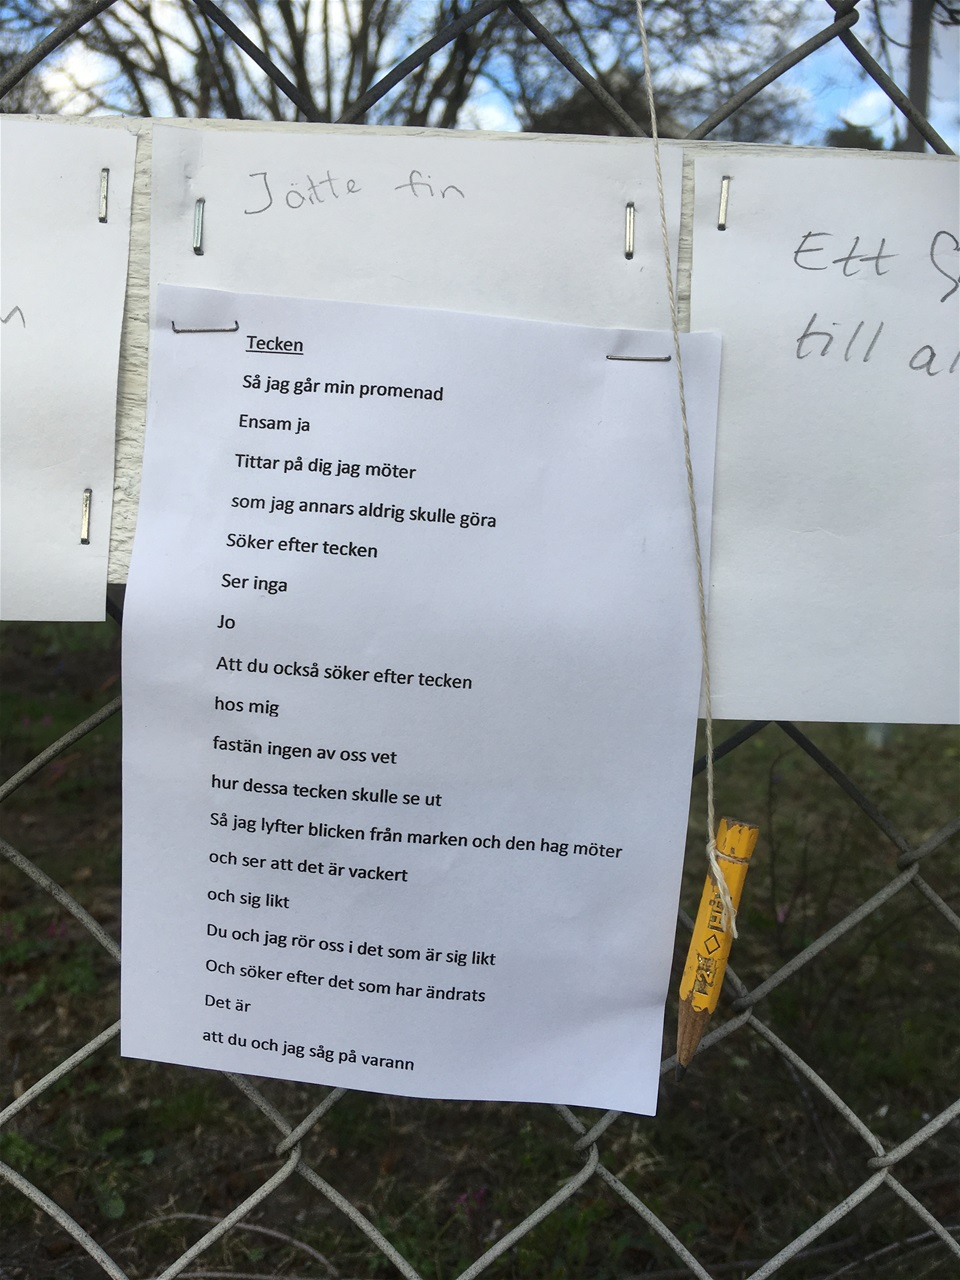 Jätte fin
Tecken
Så jag går min promenad
Ensam ja
Tittar på dig jag möter
som jag annars aldrig skulle göra
Söker efter tecken
Ser inga
Jo
Att du också söker efter tecken
hos mig
fastän ingen av oss vet
hur dessa tecken skulle se ut
Så jag lyfter blicken från marken och den hag möter
och ser att det är vackert
och sig likt
Du och jag rör oss i det som är sig likt
Och söker efter det som har ändrats
Det är
att du och jag såg på varann
Ett
till